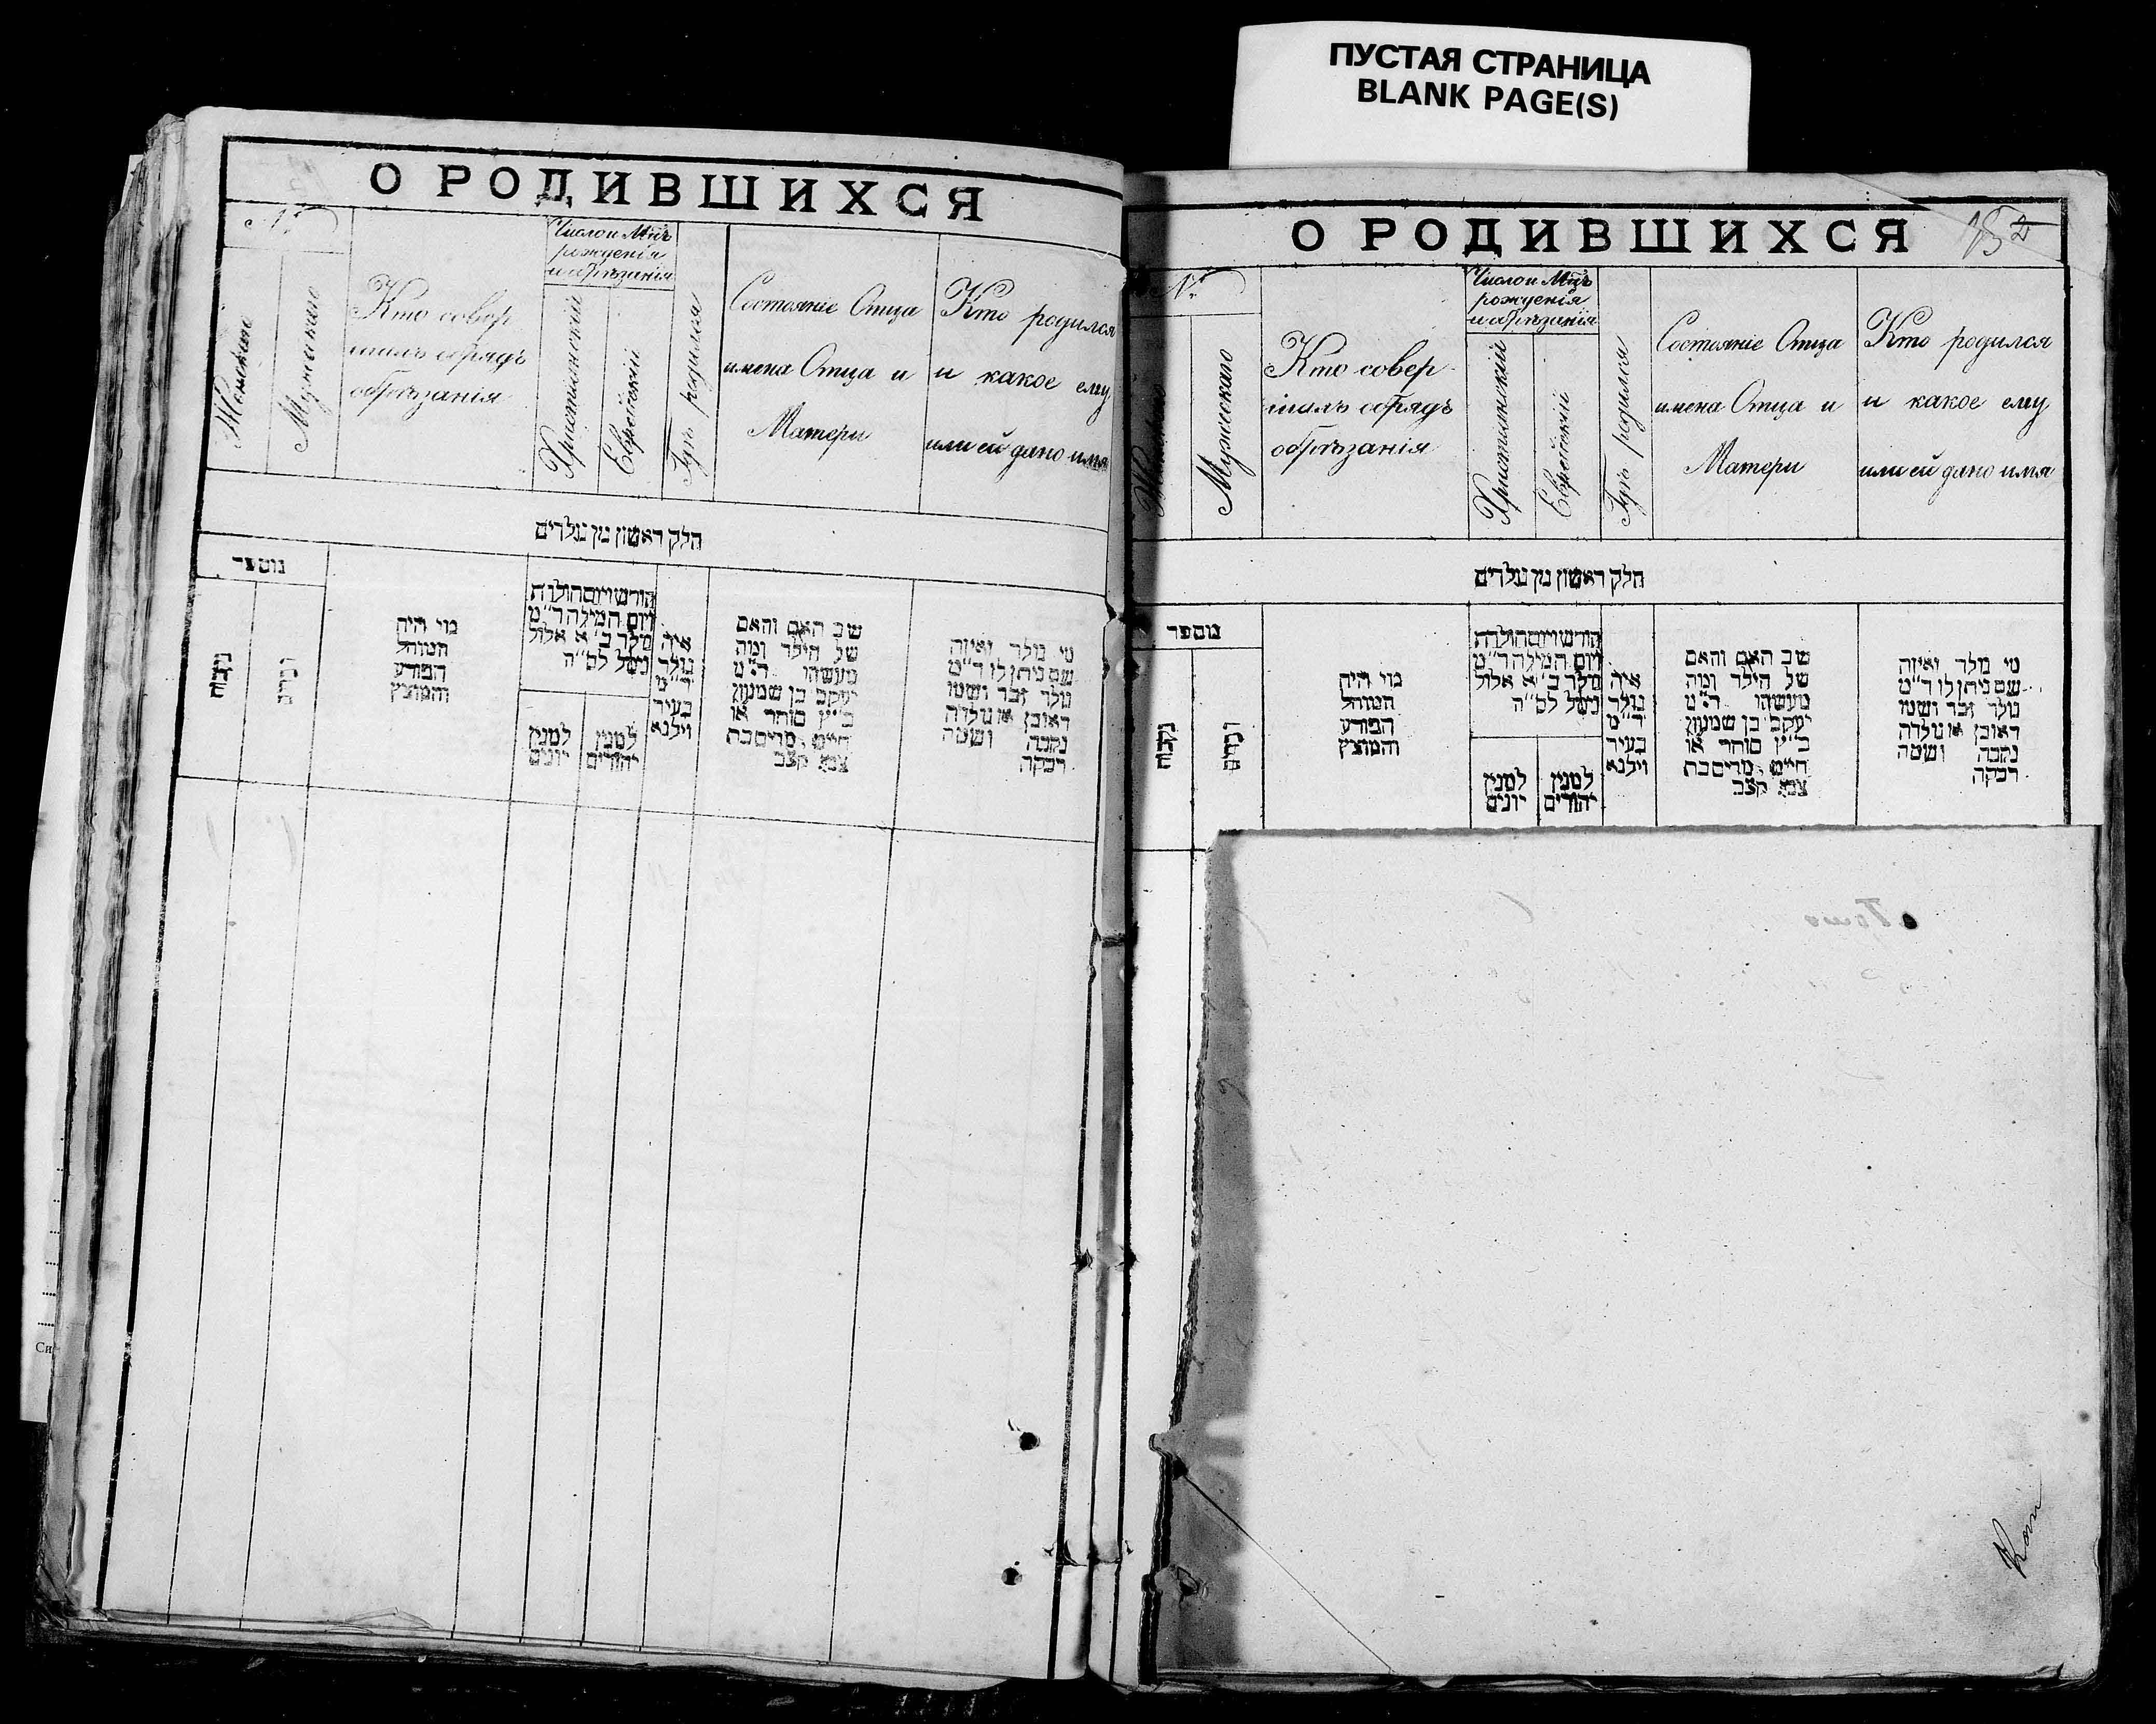 ПУСТАЯ СТРАНИЦА
BLANK PAGE(S)
О РОДИВШИХСЯ
№
Женскаго
Мужескаго
Кто совер-
шалъ обрядъ
обрѣзанія
Число и Мцъ
рожденія
и обрѣзанія
Христіанскій
Еврейскій
Гдѣ родился
Состояніе Отца
имена Отца и
Матери
Кто родился
и какое ему
или ей дано имя
חלק ראשון מן נולדים
נומער
נקבות
זכרים
מי היה
המוהל
הפורע
והמוצץ
חודש ויום הולדת
ויום המילה ד"מ
נולד ב' א אלול
נימל לס"ה
למנין
יונים
למנין
יהודים
איה
נולד
ד"מ
בעיר
וילנא
שם האם והאב
של הילד ומה
מעשהו ד"מ
יעקב בן שמעון
כ"ץ סוחר או
חייט מרים בת
צבי קצב
מי נולד ואיזה
שם ניתן לו ד"מ
נולד זכר ושמו
ראובן או נולדה
נקבה ושמה
רבקה
О РОДИВШИХСЯ
152
№
Женскаго
Мужескаго
Кто совер-
шалъ обрядъ
обрѣзанія
Число и Мцъ
рожденія
и обрѣзанія
Христіанскій
Еврейскій
Гдѣ родился
Состояніе Отца
имена Отца и
Матери
Кто родился
и какое ему
или ей дано имя
חלק ראשון מן נולדים
מספר
נקבות
זכרים
מי היה
המוהל
הפורע
והמוצץ
חודש ויום הולדת
ויום המילה ד"מ
נולד ב' א אלול
נימל לס"ה
למנין
יונים
למנין
יהודים
איה
נולד
ד"מ
בעיר
וילנא
שם האם והאב
של הילד ומה
מעשהו ד"מ
יעקב בן שמעון
כ"ץ סוחר או
חייט מרים בת
צבי קצב
מי נולד ואיזה
שם ניתן לו ד"מ
נולד זכר ושמו
ראובן או נולדה
נקבה ושמה
רבקה